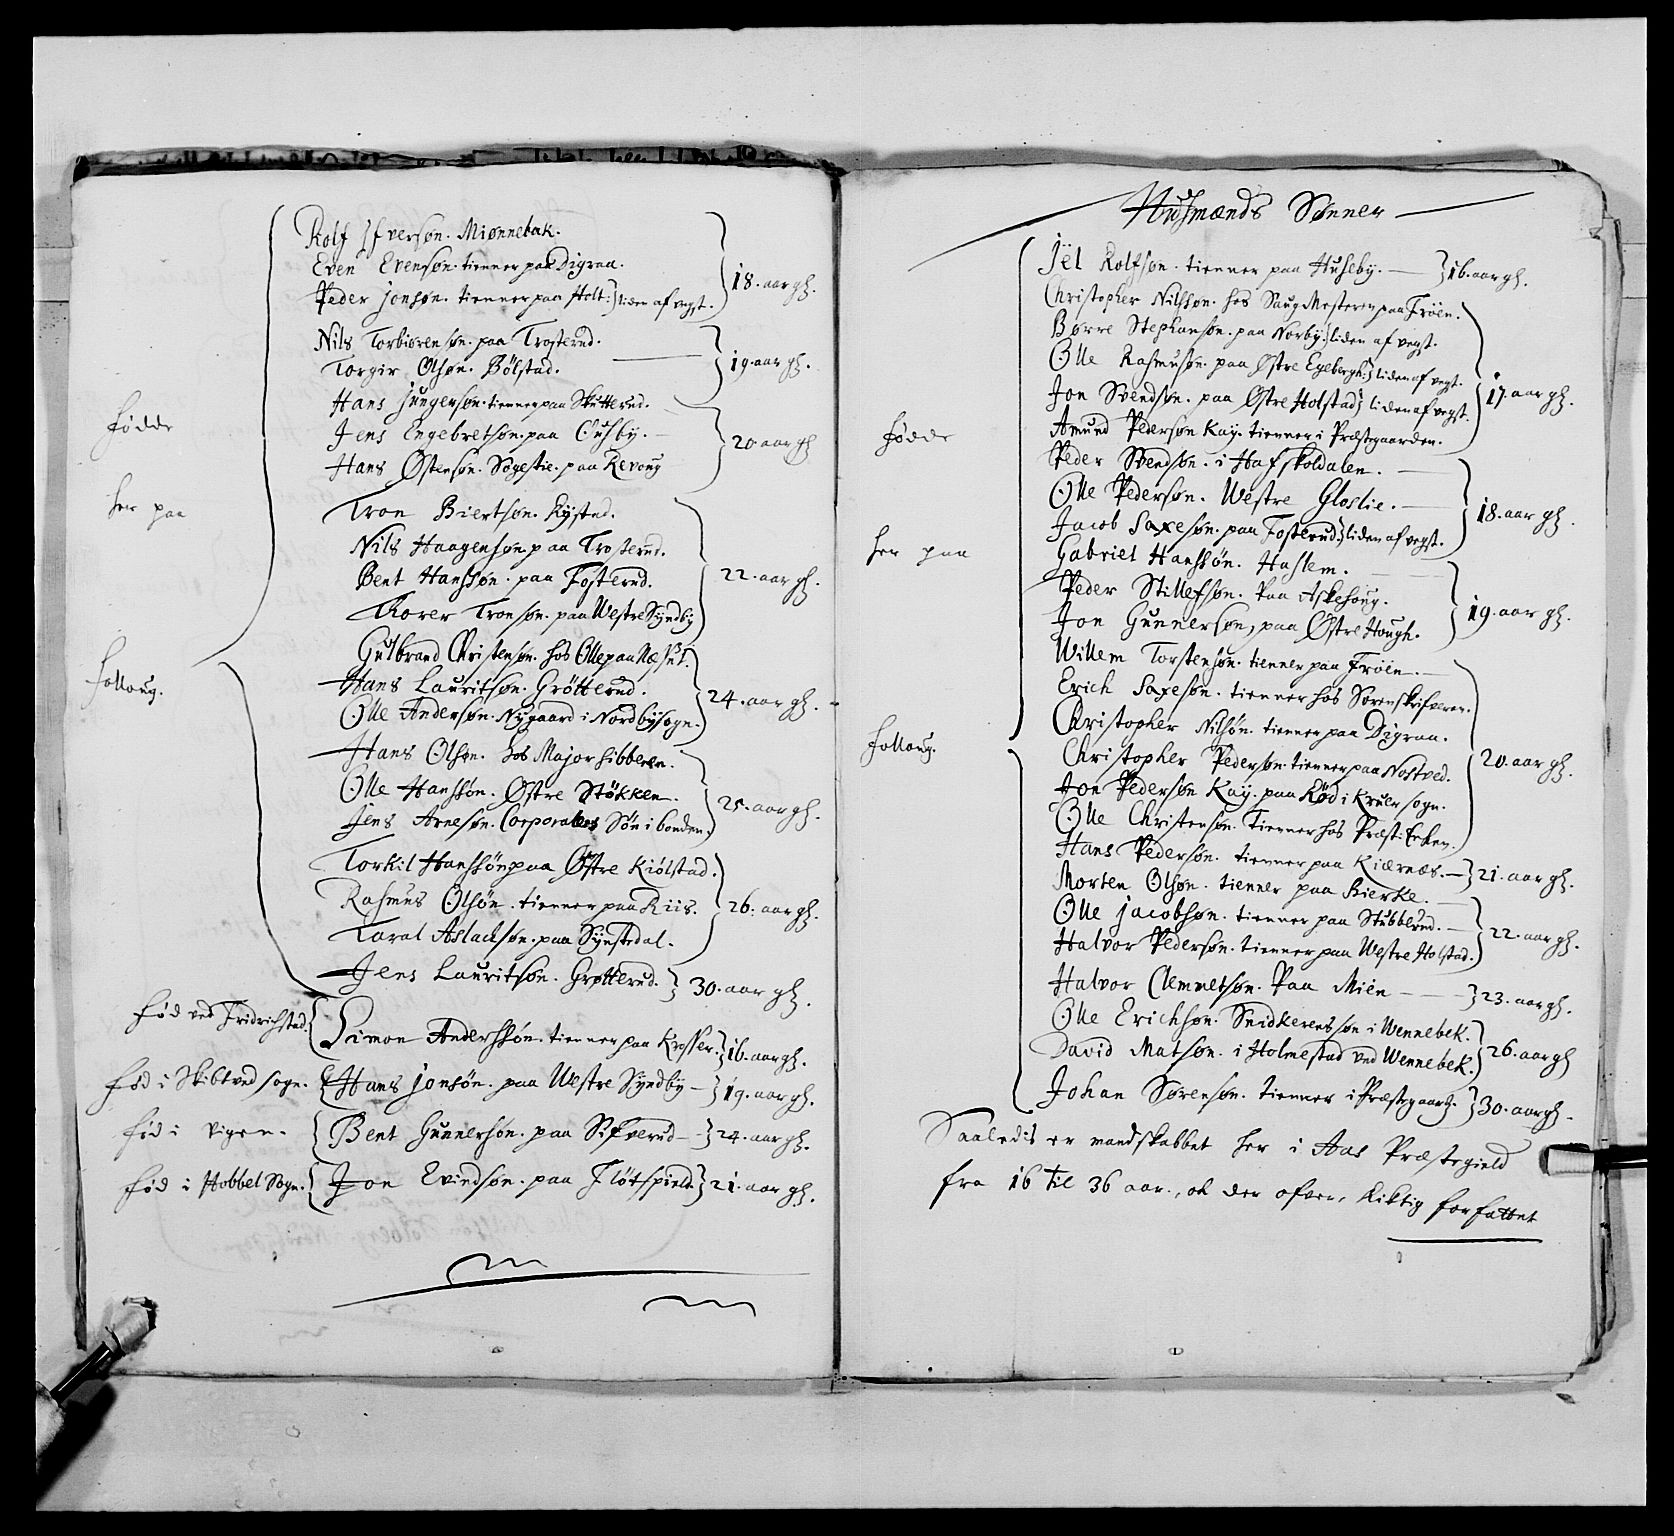 Rolf Ifversøn. Miønnebak.
Even Evensøn. tienner paa Digraa.
Peder jonsøn. tienner paa Holt. } liden af vegst. } 18. aar gl.
Nils Torbiørensøn. paa Trosterud.
Torgir Olsøn. Bølstad. } 19. aar gl.
Hans Jungersøn. tienner paa Skutterud.
Jens Engebretsøn. paa Husby.
Hans Østensøn. Søgestie. paa Revoug } 20 aar gl
Fødde
her paa
Folloug.
Tron Biertsøn. Rystad.
Nils Haagensøn paa Trosterud.
Bent Hanssøn. paa Fosterud.
Thorer Tronsøn. paa Westre Syndby } 22. aar gl.
Gulbrand Christensøn. hos Olle paa Næsset.
Hans Lauritsøn. Grøtterud.
Olle Andersøn. Nygaard i Nordbysogn. } 24. aar gl.
Hans Olsøn. hos Major Hibberen.
Olle Hanssøn. Østre Støkken.
Jens Arnesøn. Corporalens Søn i bonden. } 25. aar gl.
Torkil Hanssøn paa Østre Kiølstad.
Rasmus Olsøn. tienner paa Riis.
Taral Aslacksøn. paa Synstedal. } 26. aar gl.
Jens Lauritsøn. Grøtterud. } 30. aar gl.
Fød ved Fridrichstad. { Simon Anderssøn. tienner paa Krosser. } 16. aar gl.
Fød i Skibtved sogn. { Hans jonsøn. paa Westre Syndby } 19. aar gl.
Fød i vigen. { Bent Gunnersøn. paa Sifverud } 24. aar gl.
Fød i Hobbel Sogn. { Jon Evindsøn. paa Fløtspield } 21. aar gl.
Husmænds Sønner
Jel Rolfsøn. tienner paa Huseby. } 16. aar gl.
Christopher Nilssøn. hos Saug Mesteren paa Frøen.
Børre Stephansøn. paa Norby. } liden af vegst.
Olle Rasmusøn. paa Østre Egebergh. } liden af vegt.
Jon Svendsøn. paa Østre Holstad } liden af vegst.
Amund Pedersøn Kay. tienner i Præstegaarden. } 17. aar gl.
Fødde
her paa
Folloug.
Peder Svendsøn. i Hafskoldalen.
Olle Pedersøn. Westre Gloslie.
Jacob Saxesøn. paa Fosterud. } liden af vegst. } 18. aar gl.
Gabriel Hanssøn. Haslem.
Peder Stillefsøn. Paa Askehoug.
Jon Gunnersøn, paa Østre Hough. } 19. aar gl.
Willem Torstensøn. tienner paa Frøen.
Erich Saxesøn. tienner hos Sorenskifveren.
Christopher Nilsøn. tienner paa Digraa.
Christopher Pedersøn. tienner paa Nostved.
Jon Pedersøn Kay. paa Rød i Kruer sogn.
Olle Christensøn. Tienner hos Præst: Enken. } 20. aar gl.
Hans Pedersøn. tienner paa Kiærnæs. } 21. aar gl.
Morten Olsøn. tienner paa Bierke.
Olle jacobsøn. tienner paa Stubberud.
Halvor Pedersøn. tienner paa Westre Holstad. } 22. aar gl.
Halvor Clemmetsøn. Paa Mien } 23. aar gl.
Olle Erichsøn. Snidkerens søn i Wennebek.
David Matsøn. i Holmestad ved Wennebek. } 26. aar gl
Johan Sørensøn. tienner i Præstegaard. } 30. aar gl.
Saaledis er mandskabbet her i Aas Præstegield
fra 16 til 36 aar., ok der ofver, Riktig forfattet